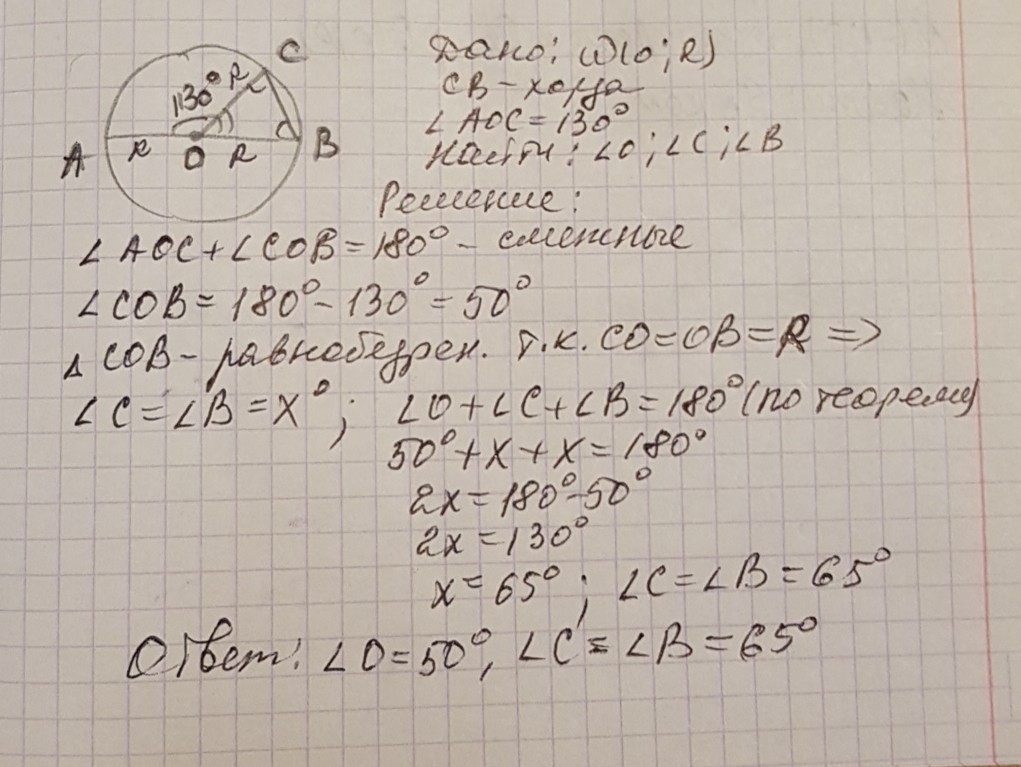 C
130° R
A R O R B
Дано: ω(О; R)
CB - хорда
∠AOC = 130°
Найти: ∠O; ∠C; ∠B
Решение:
∠AOC + ∠COB = 180° - смежные
∠COB = 180° - 130° = 50°
△COB - равнобедрен. т.к. CO = OB = R =>
∠C = ∠B = x°; ∠O + ∠C + ∠B = 180° (по теореме)
50° + x + x = 180°
2x = 180° - 50°
2x = 130°
x = 65°; ∠C = ∠B = 65°
Ответ: ∠O = 50°, ∠C = ∠B = 65°